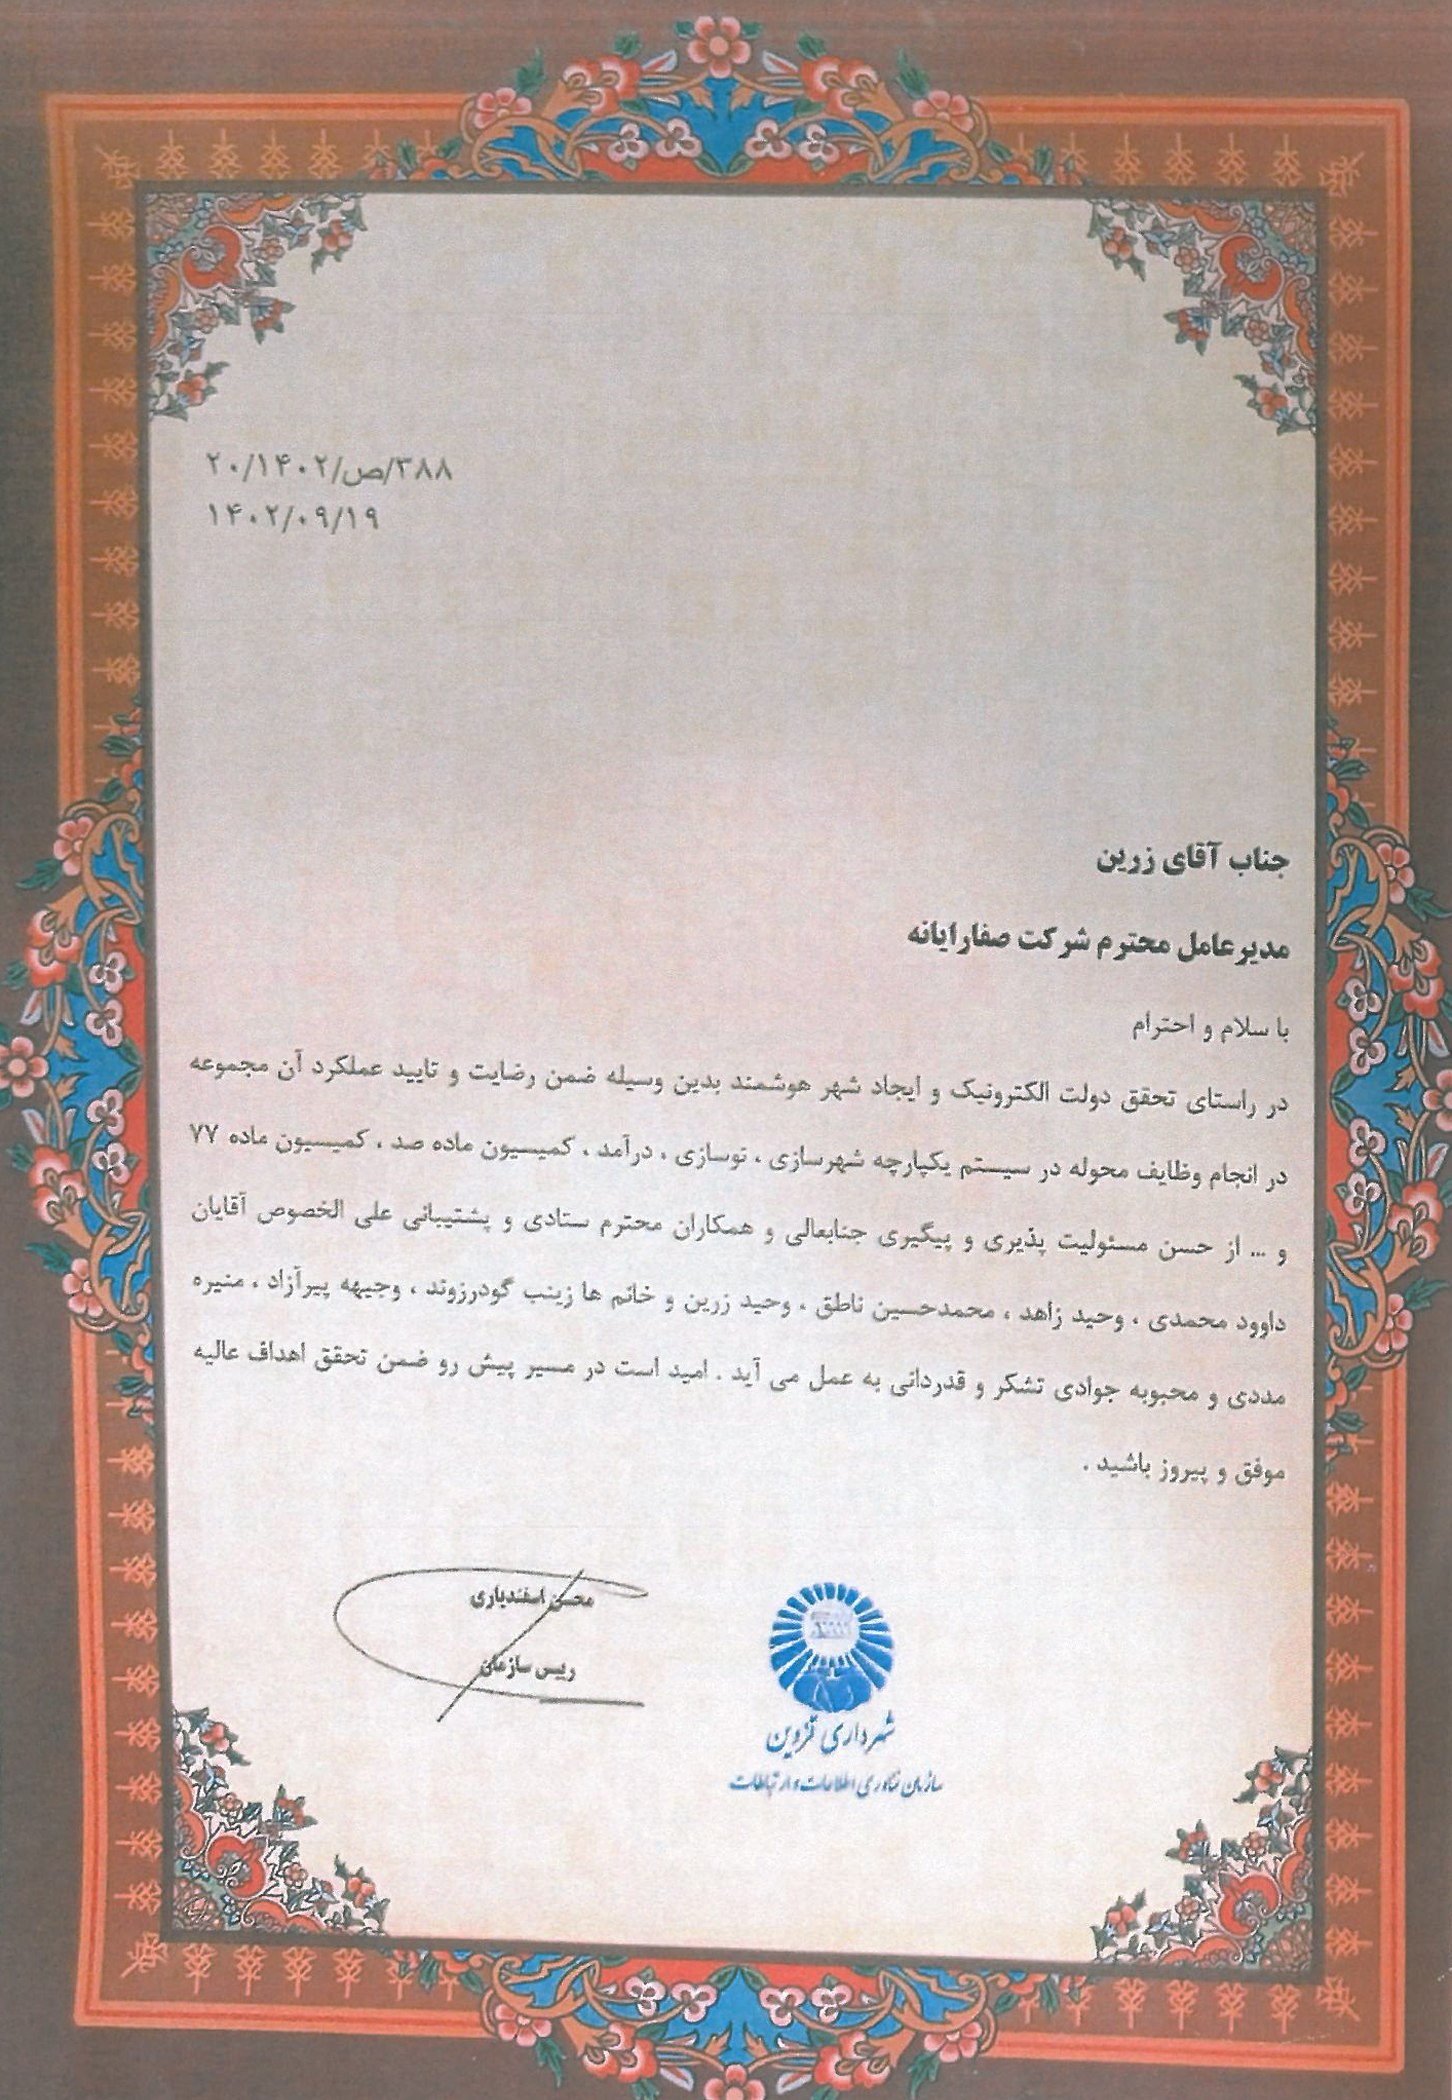 ۲۰/۱۴۰۲/ص/۳۸۸
۱۴۰۲/۰۹/۱۹
جناب آقای زرین
مدیرعامل محترم شرکت صفارایانه
با سلام و احترام
در راستای تحقق دولت الکترونیک و ایجاد شهر هوشمند بدین وسیله ضمن رضایت و تایید عملکرد آن مجموعه
در انجام وظایف محوله در سیستم یکپارچه شهرسازی ، نوسازی ، درآمد ، کمیسیون ماده صد ، کمیسیون ماده ۷۷
و ... از حسن مسئولیت پذیری و پیگیری جنابعالی و همکاران محترم ستادی و پشتیبانی علی الخصوص آقایان
داوود محمدی ، وحید زاهد ، محمدحسین ناطق ، وحید زرین و خانم ها زینب گودرزوند ، وجیهه پیرآزاد ، منیره
مددی و محبوبه جوادی تشکر و قدردانی به عمل می آید . امید است در مسیر پیش رو ضمن تحقق اهداف عالیه
موفق و پیروز باشید .
محسن اسفندیاری
رییس سازمان
شهرداری قزوین
سازمان فناوری اطلاعات و ارتباطات